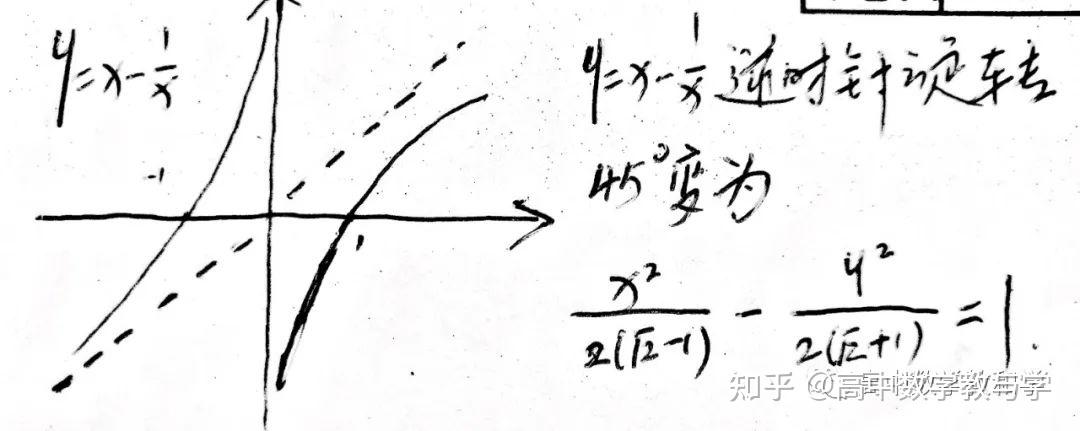 y=x-\frac{1}{x}
-1
1
y=x-\frac{1}{x} 逆时针旋转
45°变为
\frac{x^2}{2(\sqrt{2}-1)} - \frac{y^2}{2(\sqrt{2}+1)} = 1.
知乎 @高中数学教与学